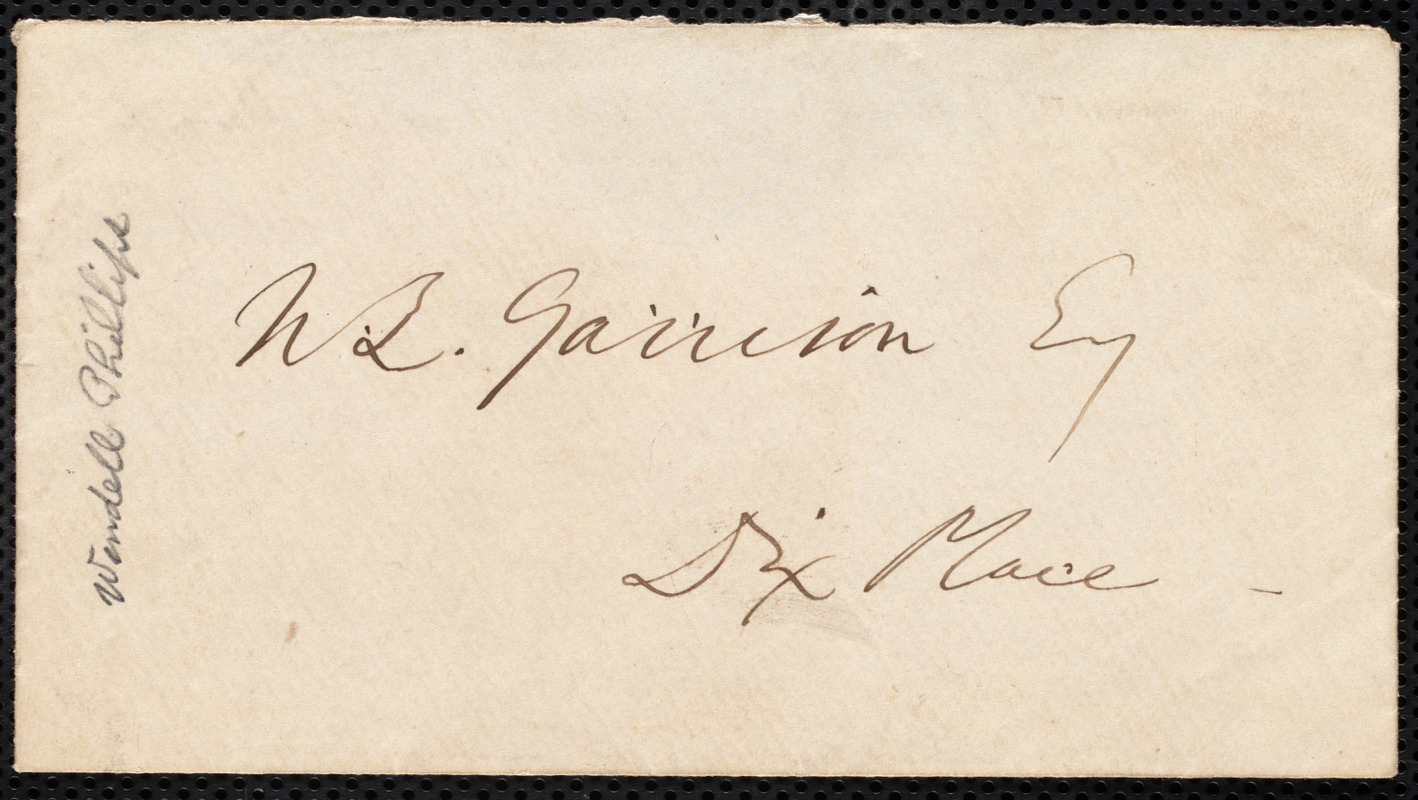 Wendell Phillips
W L. Garrison Esq
Dix Place -